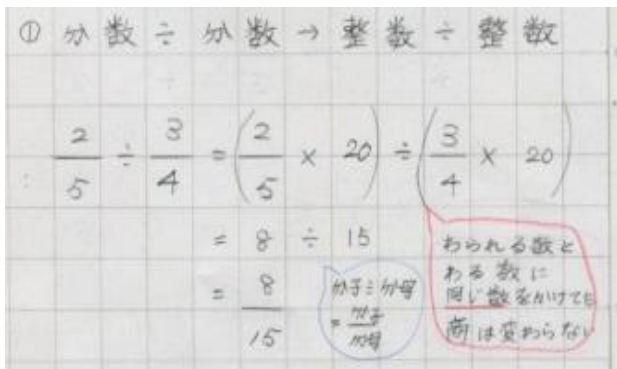 ① 分数÷分数→整数÷整数
2/5 ÷ 3/4 = (2/5 × 20) ÷ (3/4 × 20)
= 8 ÷ 15
= 8/15
分子÷分母
= 分子/分母
わられる数と
わる数に
同じ数をかけても
商は変わらない